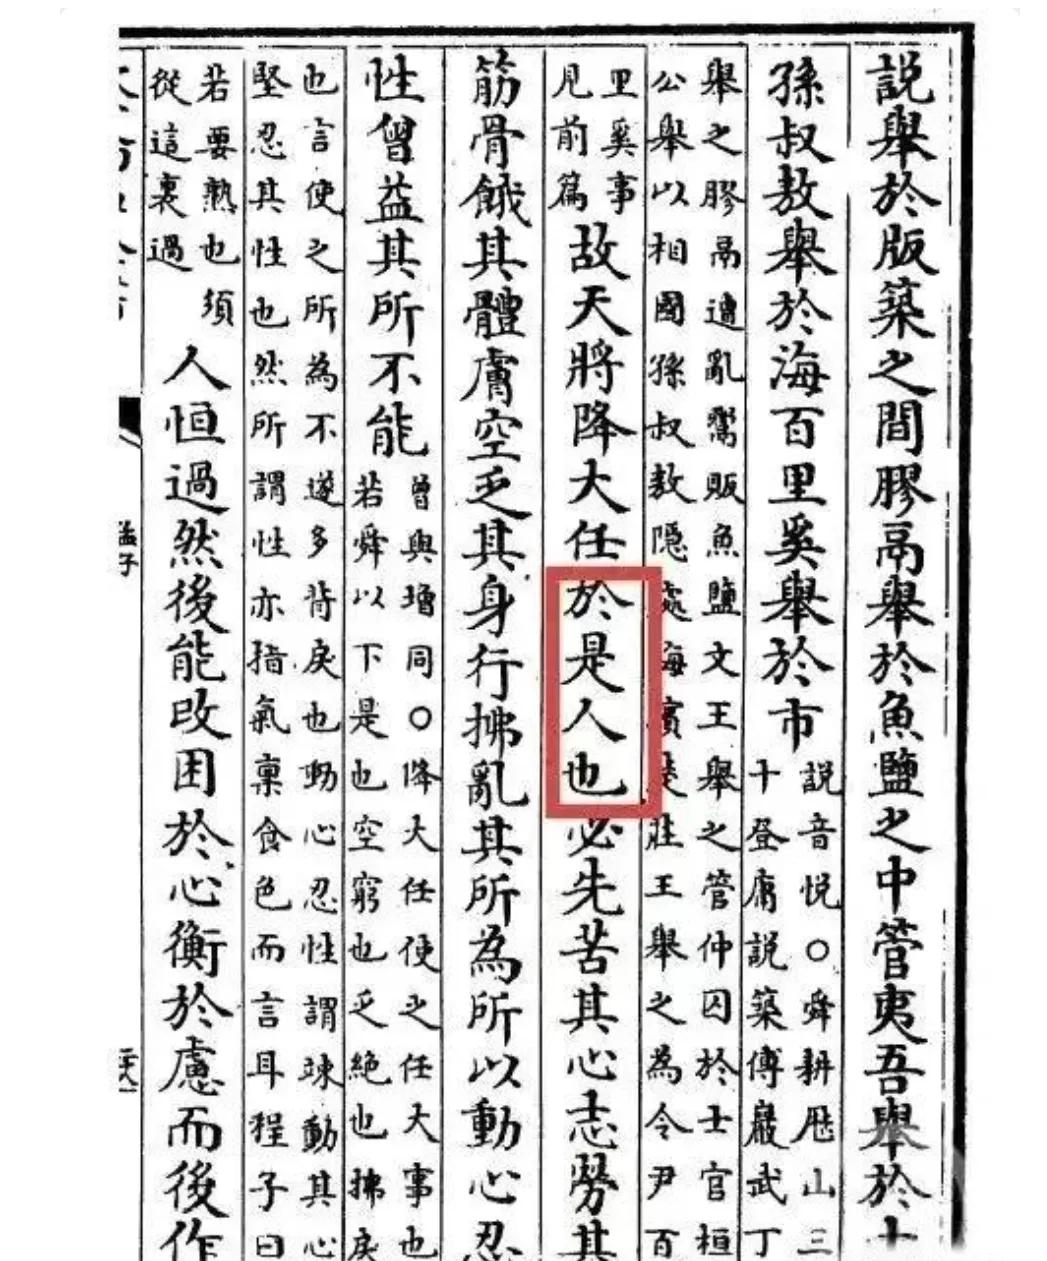 説舉於版築之間膠鬲舉於魚鹽之中管夷吾舉於士
孫叔敖舉於海百里奚舉於市
説音悦○舜耕厯山三
十登庸説築傅巖武丁
舉之膠鬲遭亂鬻販魚鹽文王舉之管仲囚於士官桓
公舉以相國孫叔敖隱處海濱楚莊王舉之為令尹百
里奚事
見前篇
故天將降大任於是人也必先苦其心志勞其
筋骨餓其體膚空乏其身行拂亂其所為所以動心忍
性曾益其所不能
曾與增同○降大任使之任大事也
若舜以下是也空窮也乏絶也拂戾
也言使之所為不遂多背戾也動心忍性謂竦動其心
堅忍其性也然所謂性亦指氣稟食色而言耳程子曰
若要熟也須
從這裏過
人恒過然後能改困於心衡於慮而後作
孟子